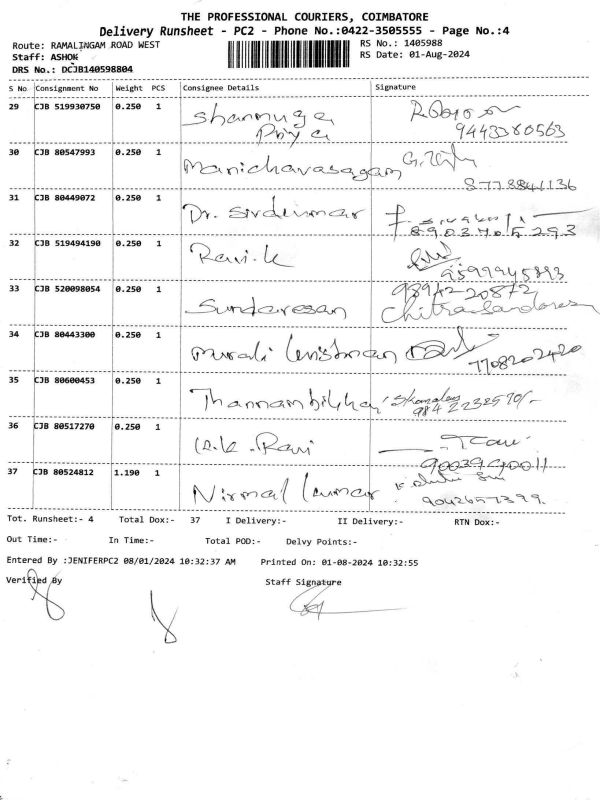 THE PROFESSIONAL COURIERS, COIMBATORE
Delivery Runsheet - PC2 - Phone No.:0422-3505555 - Page No.:4
Route: RAMALINGAM ROAD WEST RS No.: 1405988
Staff: ASHOK RS Date: 01-Aug-2024
DRS No.: DCJB140598804
S No Consignment No Weight PCS Consignee Details Signature
29 CJB 519930750 0.250 1 Shanmuga
Priya 9443380563
30 CJB 80547993 0.250 1
Manichavasagam
8778841136
31 CJB 80449072 0.250 1
Dr. Sivakumar
8903705293
32 CJB 519494190 0.250 1
Ravi.k
9599945893
33 CJB 520098054 0.250 1 9894220872
Sundaresan Chitra Sundaresan
34 CJB 80443300 0.250 1
Murali krishnan 7708202420
35 CJB 80600453 0.250 1
36 CJB 80517270 0.250 1
K.k.Ravi
9003940011
37 CJB 80524812 1.190 1
Nirmal kumar
9042657399
Tot. Runsheet:- 4 Total Dox:- 37 I Delivery:- II Delivery:- RTN Dox:-
Out Time:- In Time:- Total POD:- Delvy Points:-
Entered By :JENIFERPC2 08/01/2024 10:32:37 AM Printed On: 01-08-2024 10:32:55
Verified By Staff Signature